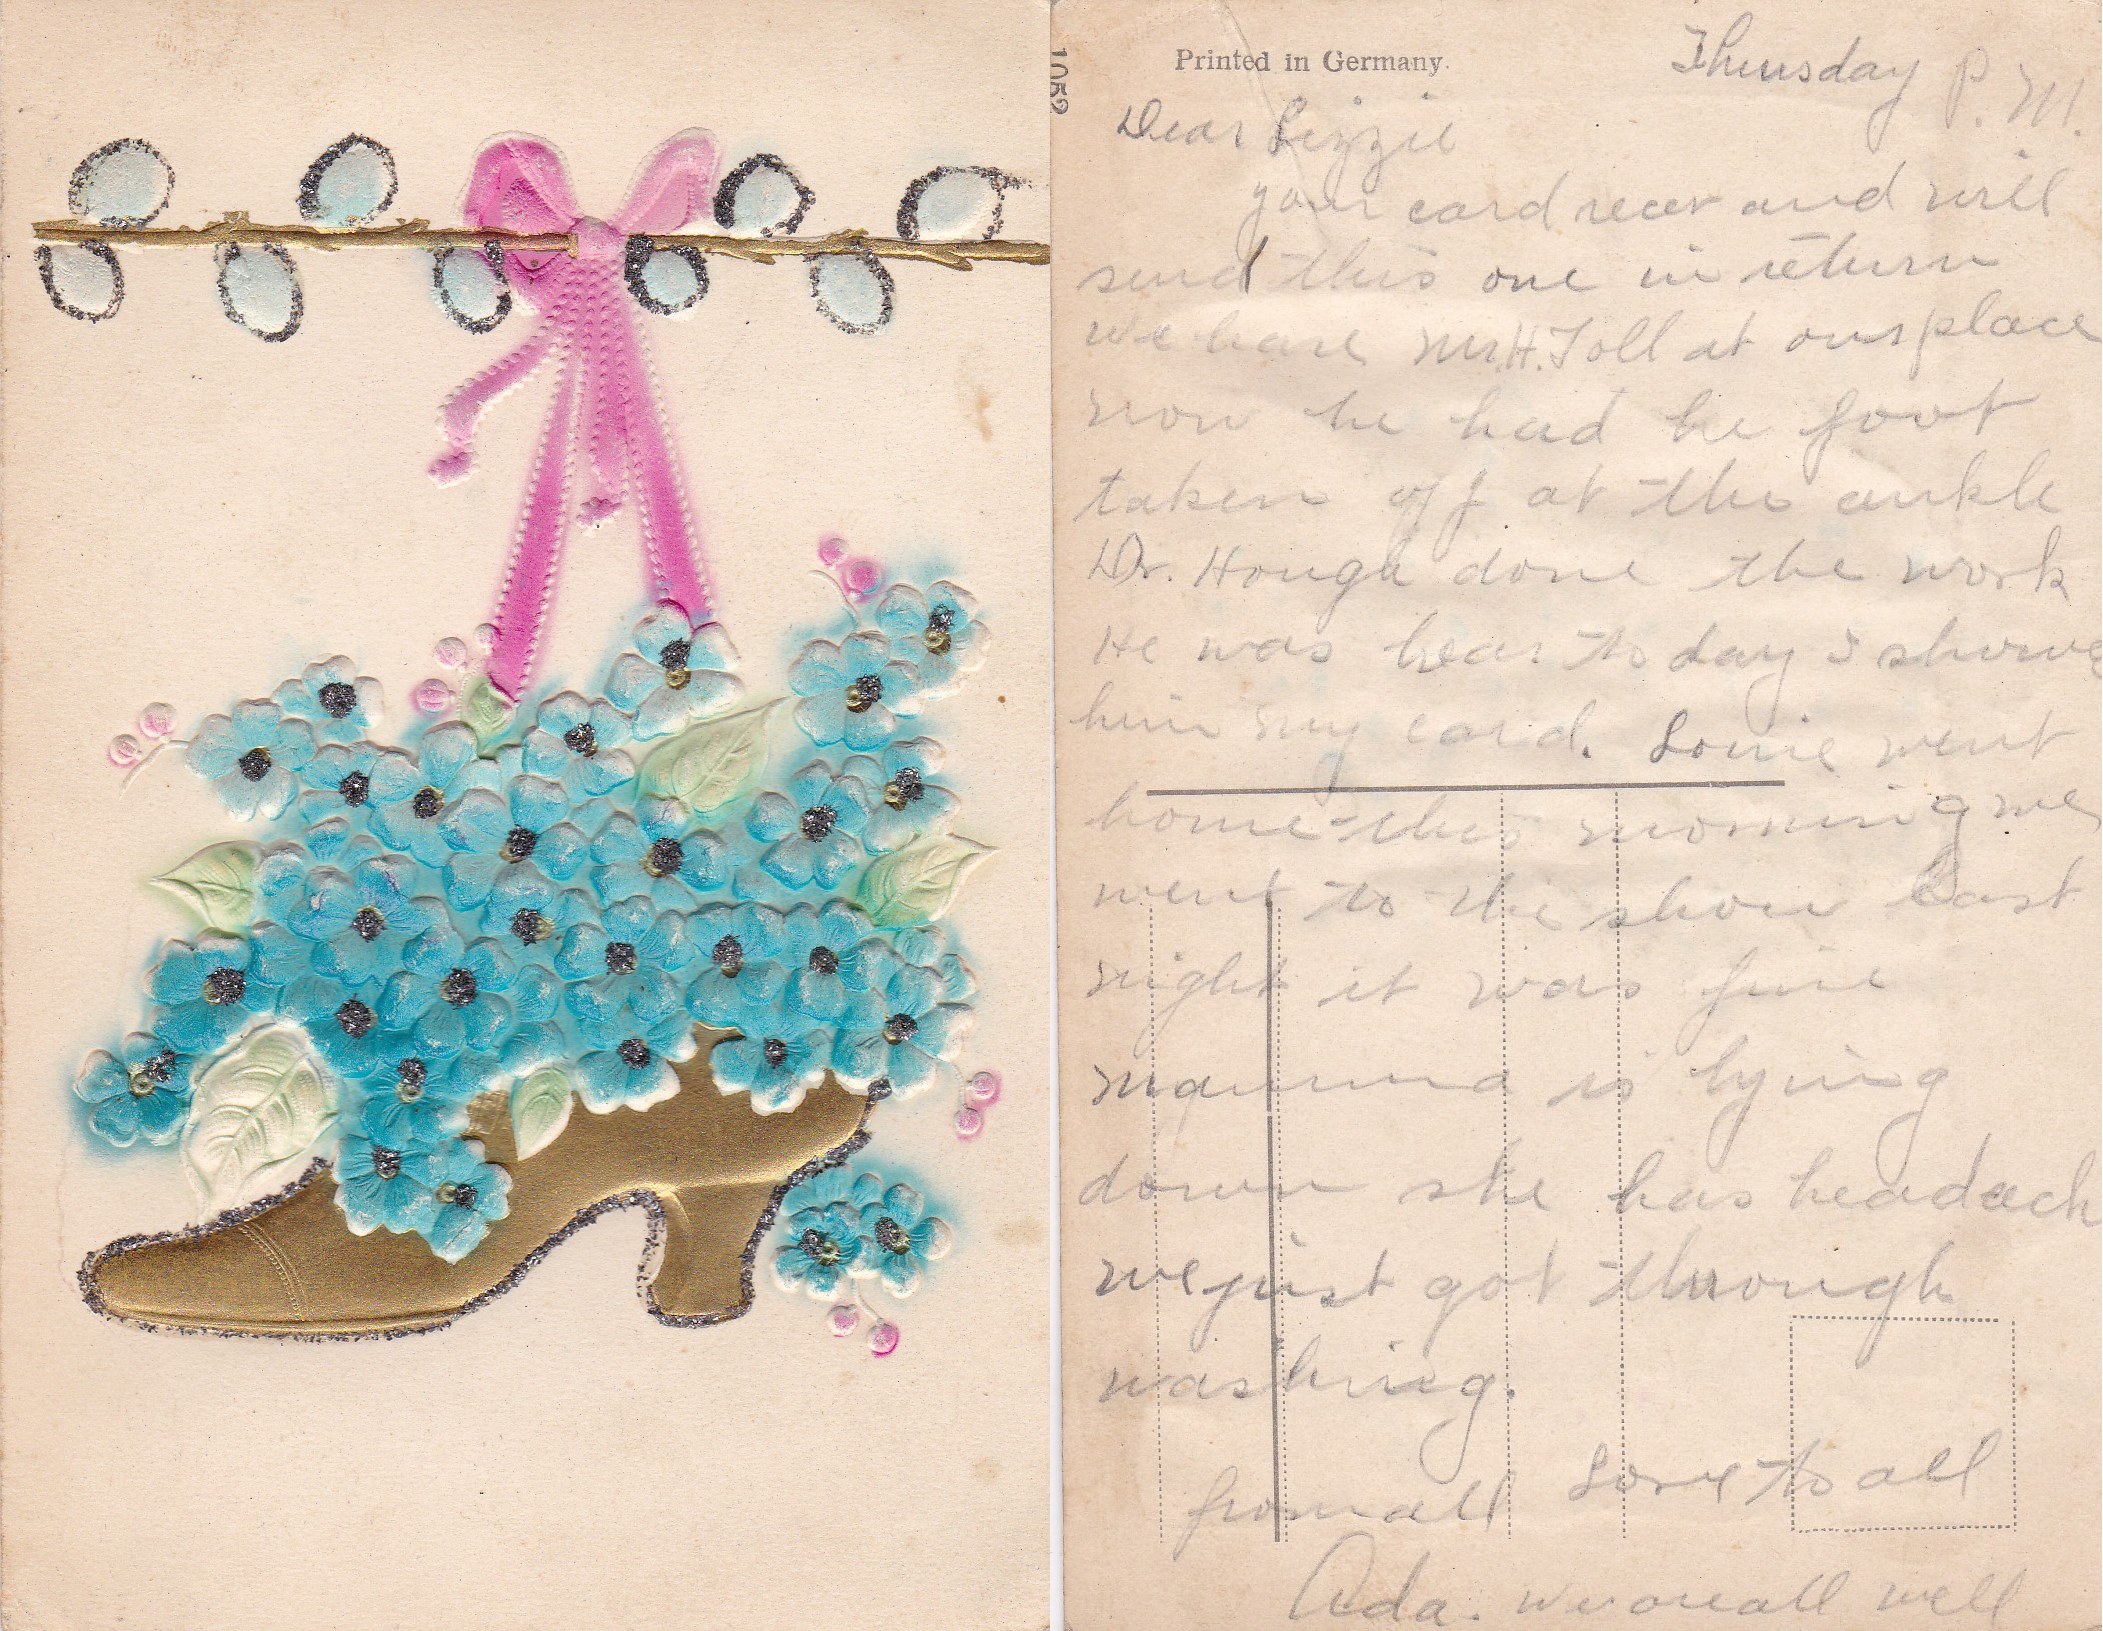 1052
Printed in Germany.
Thursday P.M.
Dear Lizzie
your card recev and will
send this one in return
we have Mr. H. Toll at our place
now he had he foot
taken off at the ankle
Dr. Hough done the work
He was hear to day I showe
him my card. Louie went
home this morning we
went to the show last
night it was fine
mamma is lying
down she has headach
we just got through
washing.
Love to all
from all
Ada. We are all well